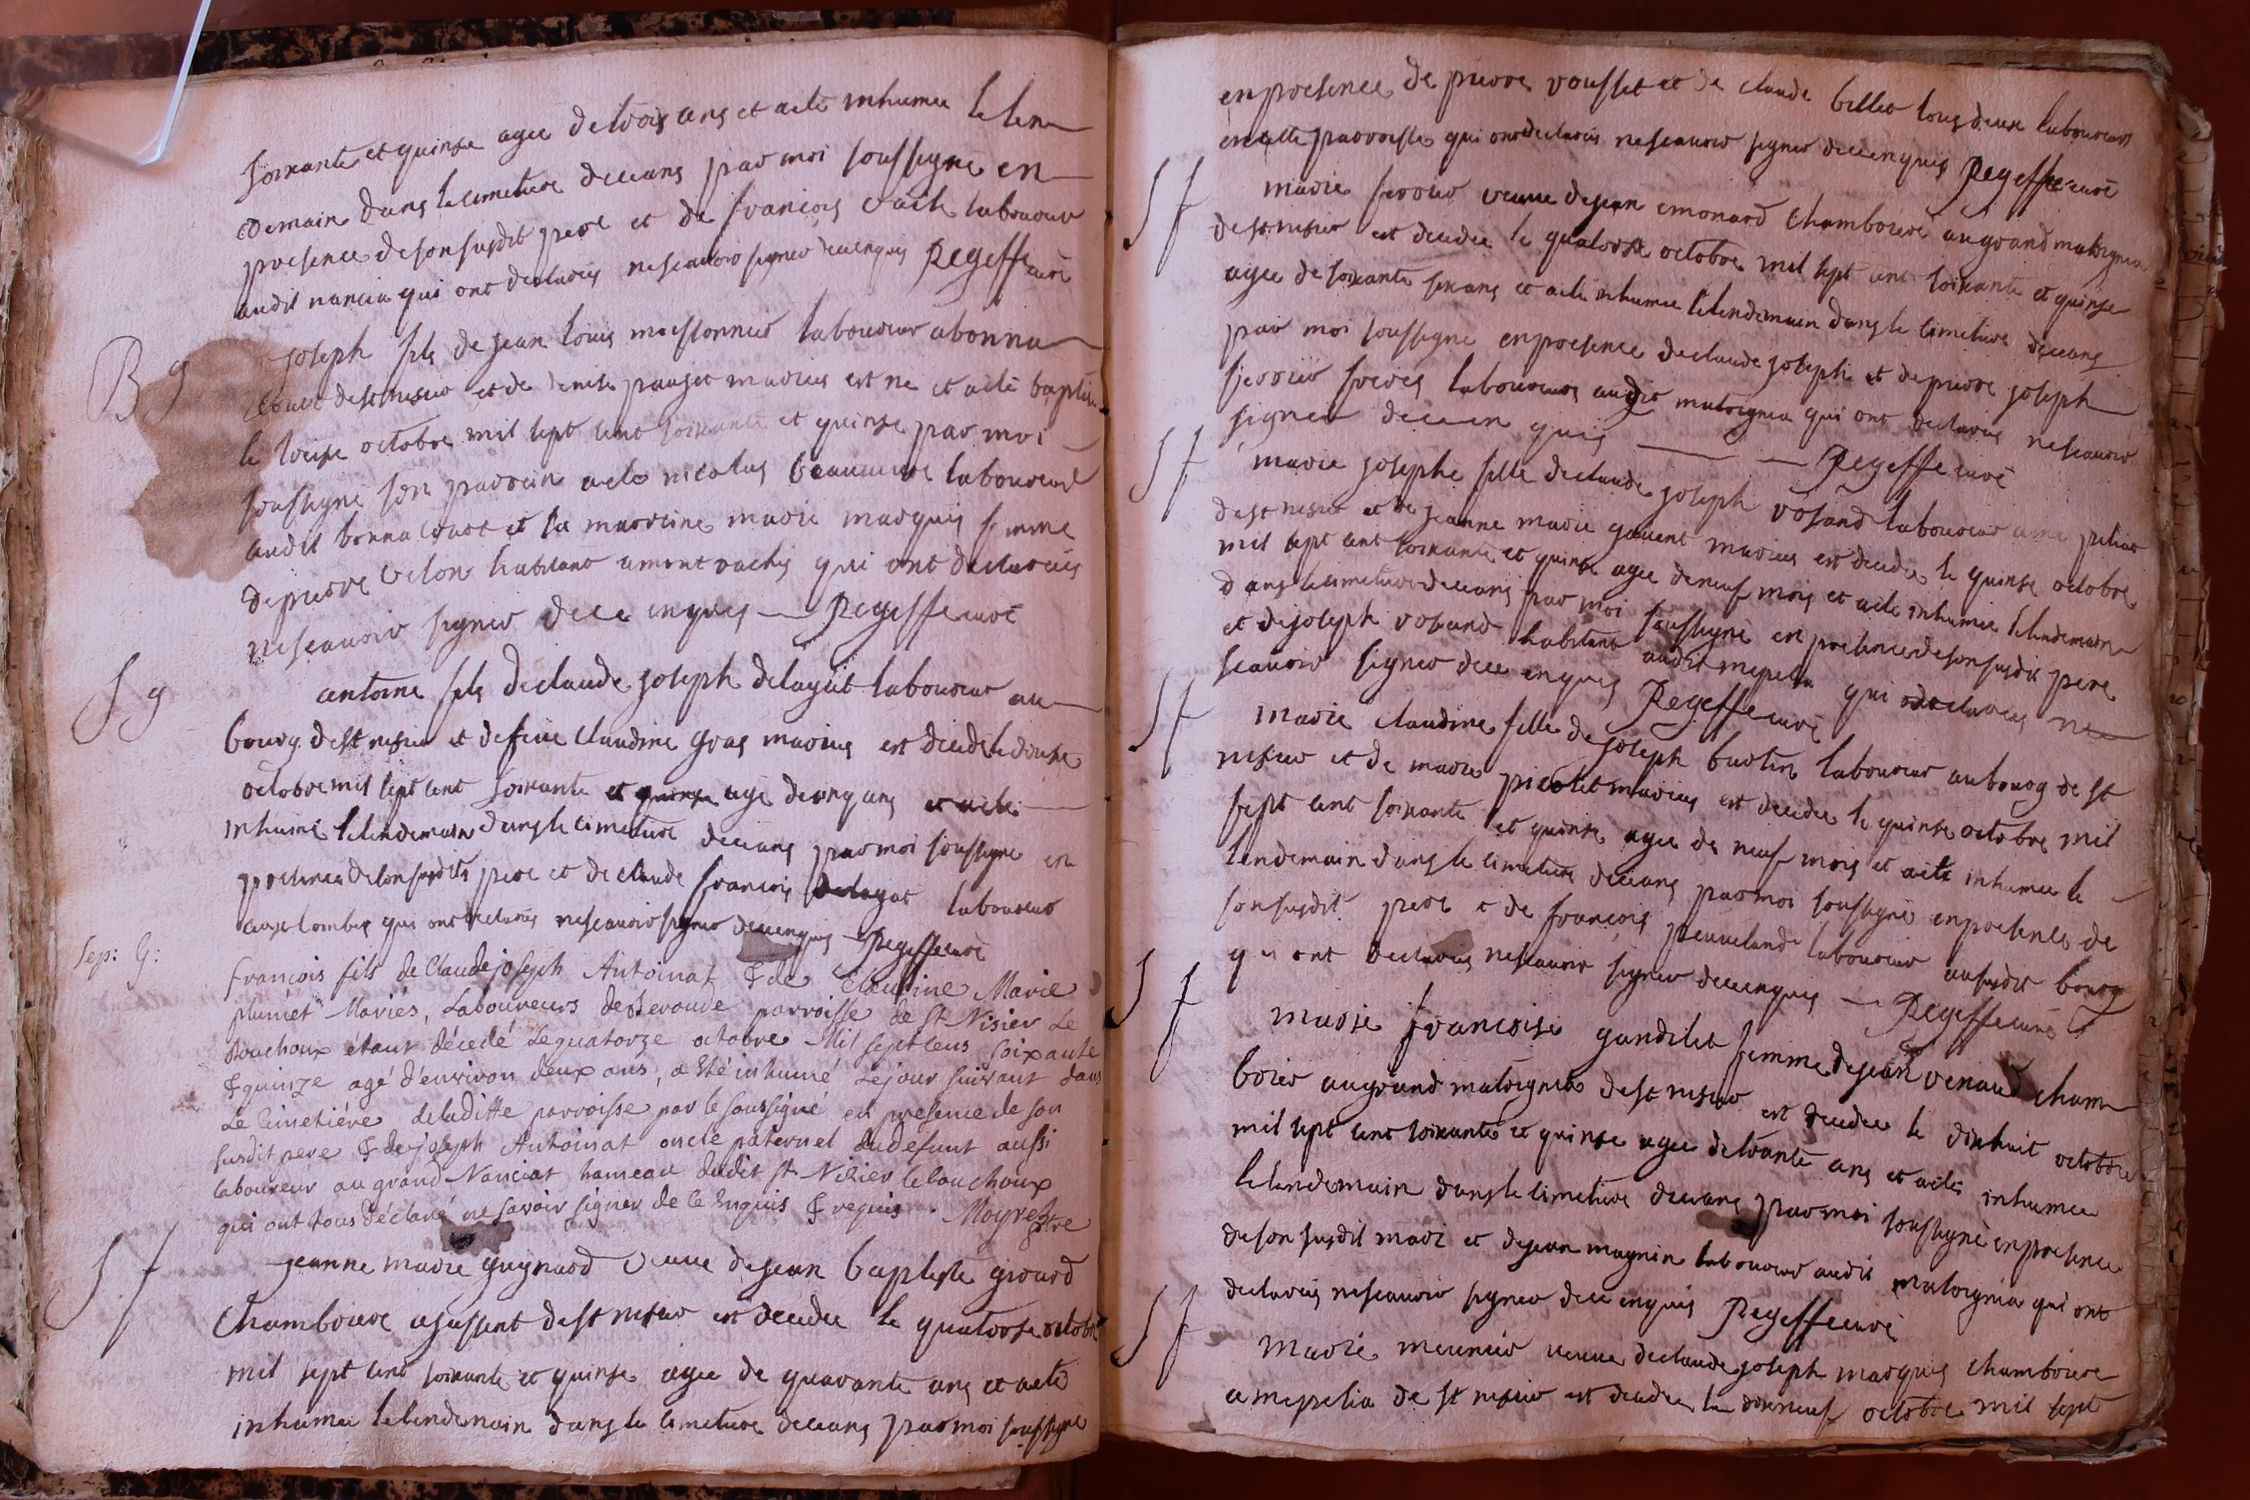 soixante et quinze agee de trois ans et a ete inhumee le len
demain dans le cimetiere deceans par moi soussigne en
presence de son susdit pere et de francois laboureur
audit nancia qui ont declarés ne scavoir signer de ce enquis Regeffe curé
B g
joseph fils de jean louis moissonnier laboureur a bonna
de st nisier et de denise pauget mariés est ne et a été baptisé
le treize octobre mil sept cent soixante et quinze par moi
soussigné son parrein a ete nicolas laboureur
audit bonna et la marreine marie marquis femme
de pierre velon habitant a montrachis qui ont declarés
ne scavoir signer de ce enquis Regeffe curé
S g
antoine fils de claude joseph delayat laboureur au
bourg de st nisier et de feue claudine gras mariés est decede le douze
octobre mil sept cent soixante et quinze agé de cinq ans et a été
inhumé le lendemain dans le cimetiere deceans par moi soussigne en
presence de son susdits pere et de claude francois delayat laboureur
aux lombes qui ont declarés ne scavoir signer de ce enquis Regeffe curé
Sep: G:
francois fils de Claude joseph Antoinat & de Claudine Marie
plumet Mariés, Laboureurs parroisse de St Nisier Le
Bouchoux étant décedé Le quatorze octobre Mil sept cens soixante
& quinze agé d'environ deux ans, a Eté inhumé Le jour suivant dans
Le Cimetiére de laditte parroisse par le soussigné en presence de son
susdit pere & de joseph Antoinat oncle paternel du defunt aussi
laboureur au grand Nanciat hameau dudit St Nisier le bouchoux
qui ont tous déclaré ne savoir signer de ce Enquis & requis. Moyret ptre
S f
jeanne marie guignard veuve de jean baptiste girard
chamboiere a jassent de st nisier est decedee le quatorze octobre
mil sept cent soixante et quinze agee de quarante ans et a ete
inhumee le lendemain dans le cimetiere deceans par moi soussigne
en presence de pierre vousset et de claude billet tous deux laboureurs
en cette parroisse qui ont declarés ne scavoir signer de ce enquis Regeffe curé
S f
marie ferrier veuve de jean emonard chamboiere au grand matrigna
de st nisier est decedee le quatorze octobre mil sept cent soixante et quinze
agee de soixante six ans et a ete inhumee le lendemain dans le cimetiere deceans
par moi soussigne en presence de claude joseph et de pierre joseph
ferrier freres laboureurs audit matrignia qui ont declarés ne scavoir
signer de ce en quis Regeffe curé
S f
marie josephe fille de claude joseph voland laboureur a me
de st nisier et de jeanne marie gauvent mariés est decedee le quinze octobre
mil sept cent soixante et quinze agee de neuf mois et a ete inhumee le lendemain
dans le cimetiere deceans par moi soussigné en presence de son susdit pere
et de joseph voland habitant audit mepelia qui ont declarés ne
scavoir signer de ce enquis Regeffe curé
S f
marie claudine fille de joseph burtin laboureur au bourg de st
nisier et de marie picolet mariés est decedee le quinze octobre mil
sept cent soixante et quinze agee de neuf mois et a ete inhumee le
lendemain dans le cimetiere deceans par moi soussigné en presence de
son susdit pere et de francois laboureur au susdit bourg
qui ont declarés ne scavoir signer de ce enquis Regeffe curé
S f
marie francoise gandilet femme de jean venaud cham
boier au grand matrignia de st nisier est decedee le dixhuit octobre
mil sept cent soixante et quinze agee de trante ans et a été inhumee
le lendemain dans le cimetiere deceans par moi soussigné en presence
de son susdit mari et de jean magnin laboureur audit matrignia qui ont
declarés ne scavoir signer de ce enquis Regeffe curé
S f
marie meunier veuve de claude joseph marquis chamboiere
a mepelia de st nisier est decedee le dixneuf octobre mil sept